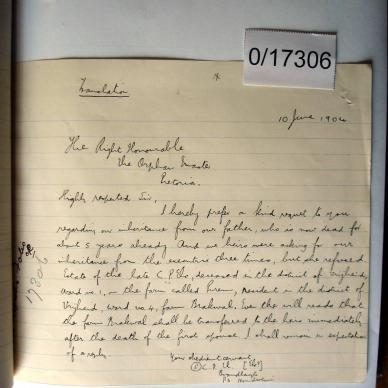 0/17306
Translation
10 June 1904
The Right Honourable
the Orphan Master
Pretoria.
Highly respected Sir,
I hereby prefer a kind request to you
regarding our inheritance from our father, who is now dead for
about 5 years already. And we heirs were asking for our
inheritance from the executrix three times, but she refused
Estate of the late C.P. deceased in the district of Vryheid,
ward no. 1, on the farm called resident in the district of
Vryheid, ward no. 4, farm Brakwal. Even the will reads that
the farm Brakwal shall be transferred to the heirs immediately
after the death of the first spouse. I shall remain in expectation
of a reply.
Your obedient servant